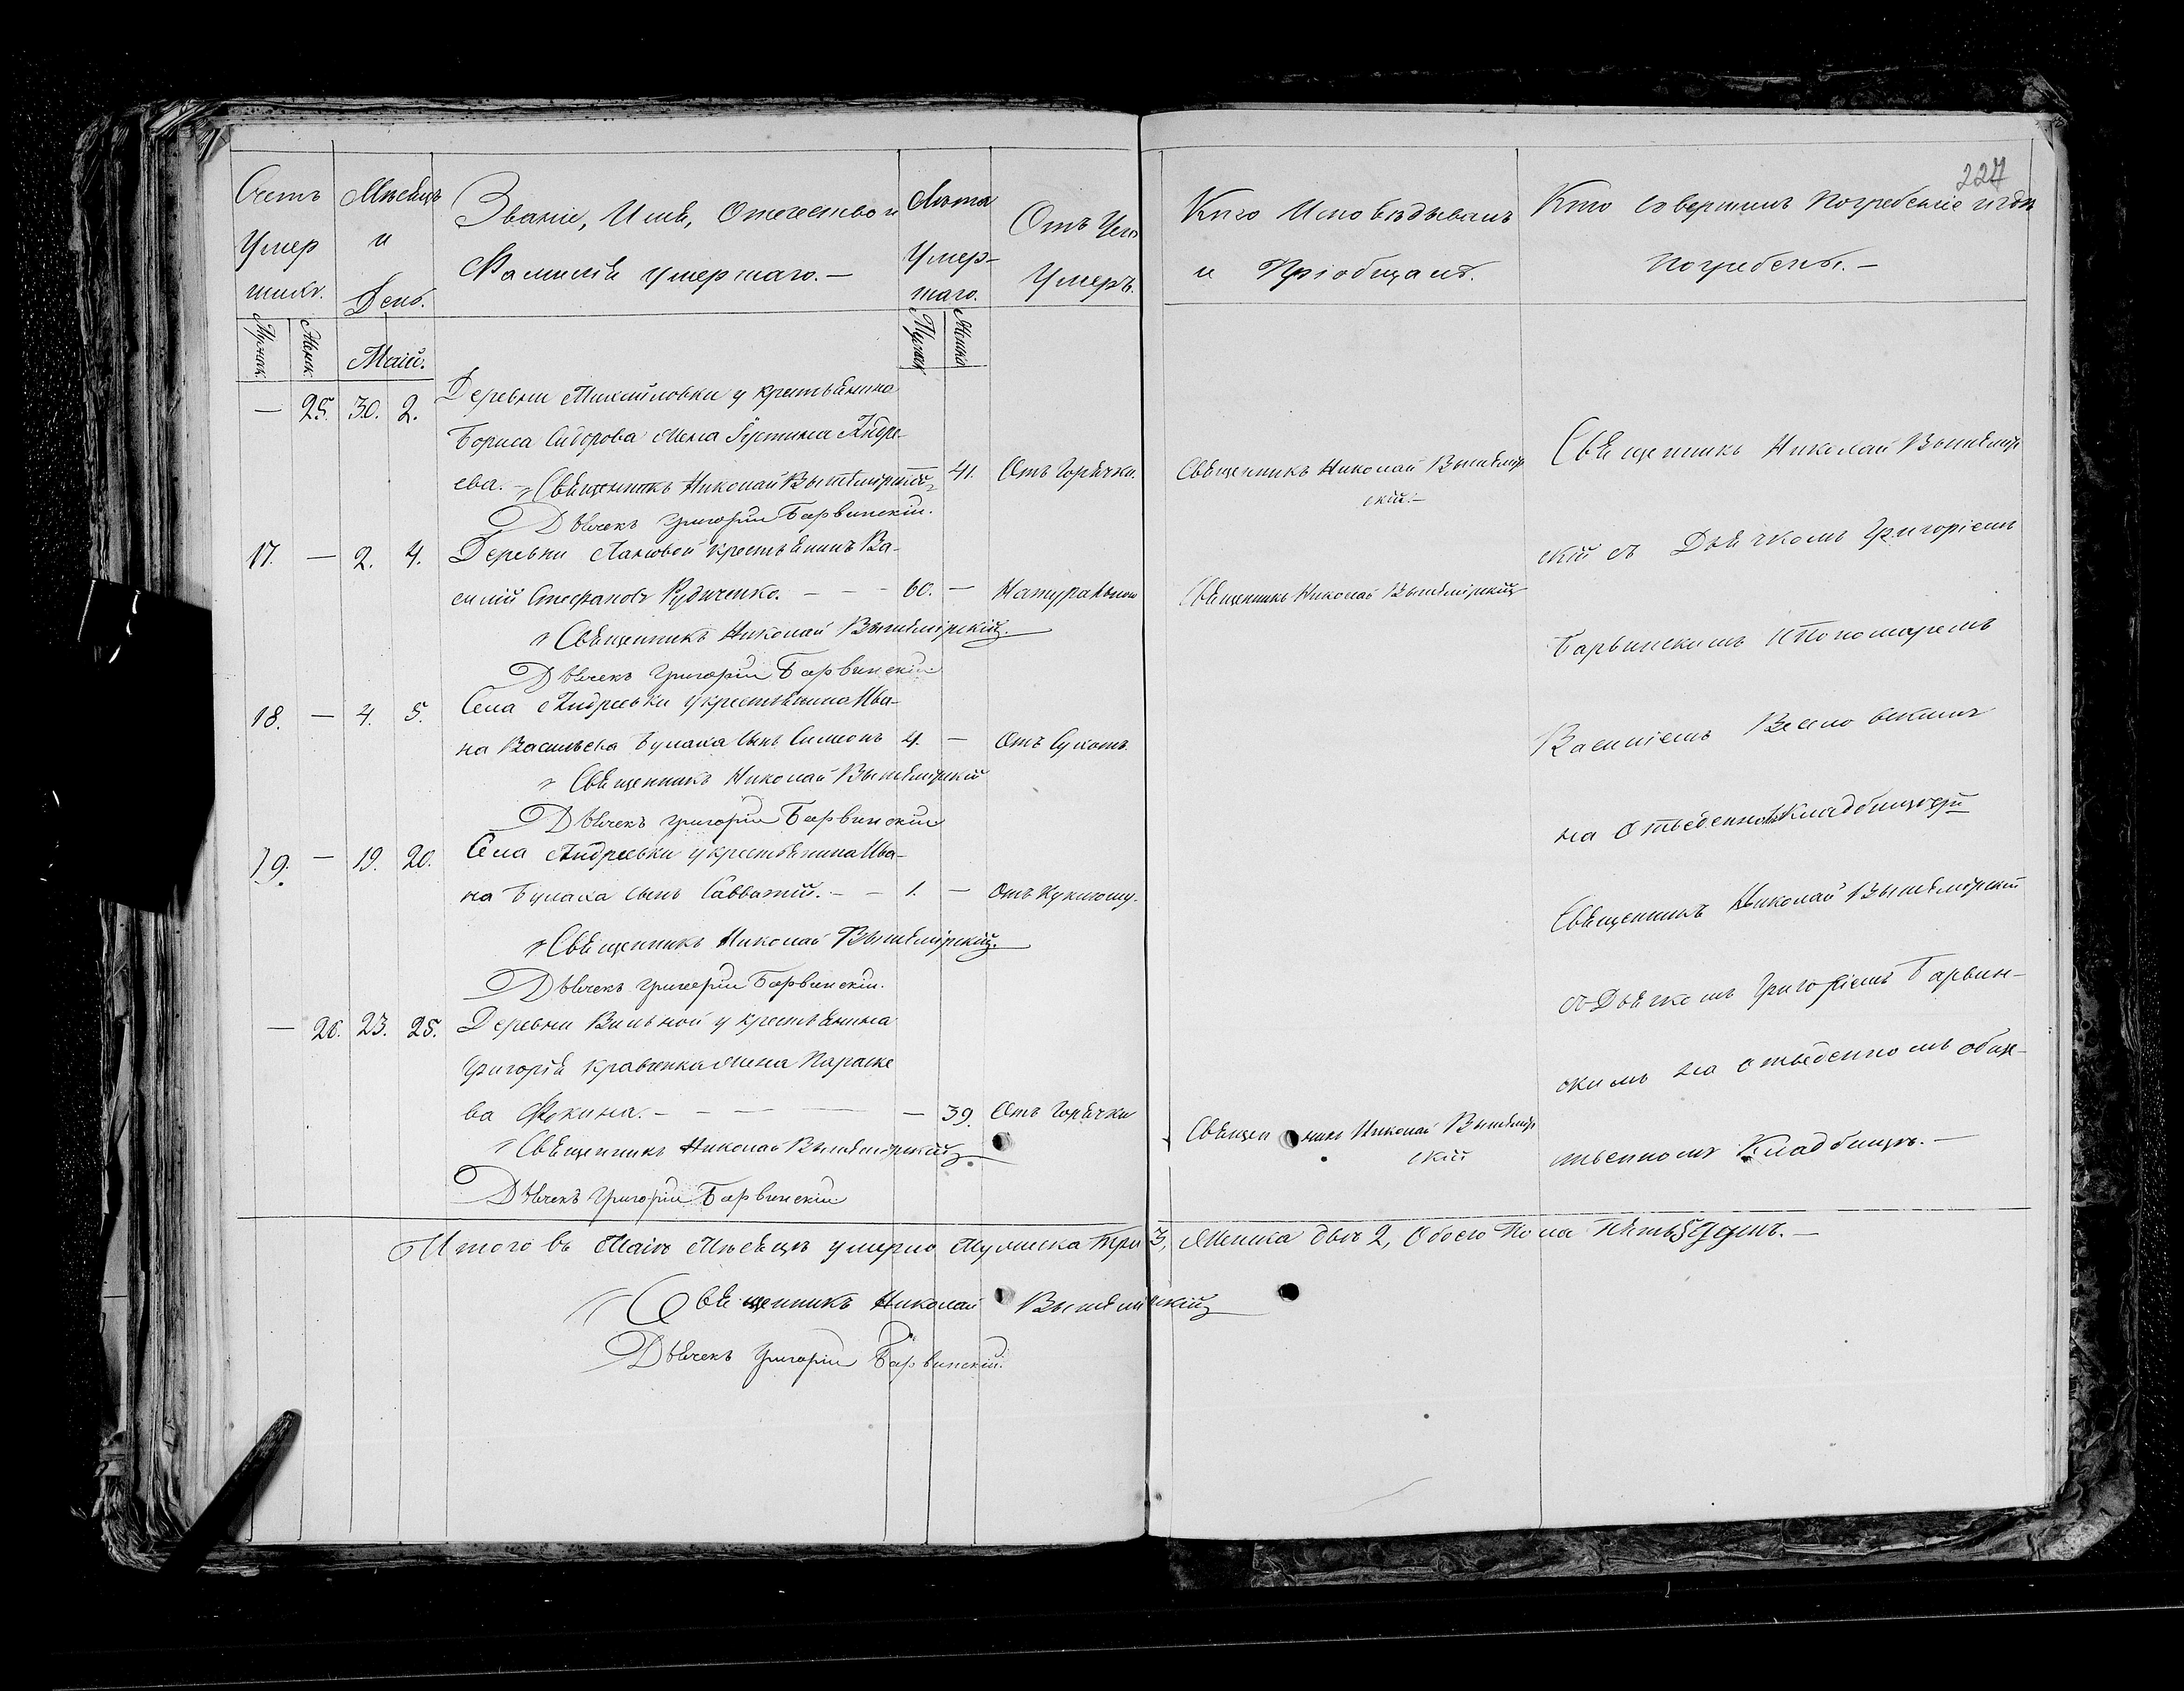 227
Счетъ
Умер
шихъ.
Мужск.
Женск.
Мѣсяцъ
и
День.
Май.
Званіе, Имя, Отечество и
Фамилія умершаго. —
Лѣта
Умер-
шаго.
Мужск.
Женск.
Отъ Чего
Умеръ.
Кто Исповѣдывалъ
и Пріобщалъ.
Кто совершилъ погребеніе и гдѣ
погребены. —
— 25. 30. 2. Деревни Михайловки у крестьянина
Бориса Сидорова жена Іустина Андре-
ева. — Священникъ Николай 41. Отъ Горячки. Священникъ Николай
скій. —
Дьячекъ Григорій Барвинскій.
17. — 2. 4. Деревни крестьянинъ Ва-
силій Стефановъ Рудиченко. — — — 60. — Натурально Священникъ Николай
Священникъ Николай
Дьячекъ Григорій Барвинскій
18. — 4. 5. Села Андреевки у крестьянина Ива-
на Васильева Булаха сынъ Симеонъ 4. — Отъ Сухотъ.
Священникъ Николай
Дьячекъ Григорій Барвинскій
19. — 19. 20. Села Андреевки у крестьянина Ива-
на Булаха сынъ Савватій. — — 1. — Отъ Куклюшу.
Священникъ Николай
Дьячекъ Григорій Барвинскій.
— 26. 23. 25. Деревни Вильной у крестьянина
Григорія Кравченка жена Параске
ва Фокина. — — — — — 39. Отъ Горячки
Священникъ Николай
Священникъ Николай
скій
Дьячекъ Григорій Барвинскій
Священникъ Николай
скій съ Дьячкомъ Григоріемъ
Барвинскимъ и Пономаремъ
Василіемъ
на отведенномъ Кладбищѣ
Священникъ Николай
съ Дьячкомъ Григоріемъ Барвин-
скимъ на отведенномъ общe-
ственномъ Кладбищѣ. —
Итого въ Маіѣ Мѣсяцѣ умерло Мужеска три 3, Женска двѣ 2, Обоего Пола пять 5 душъ. —
Священникъ Николай
Дьячекъ Григорій Барвинскій.